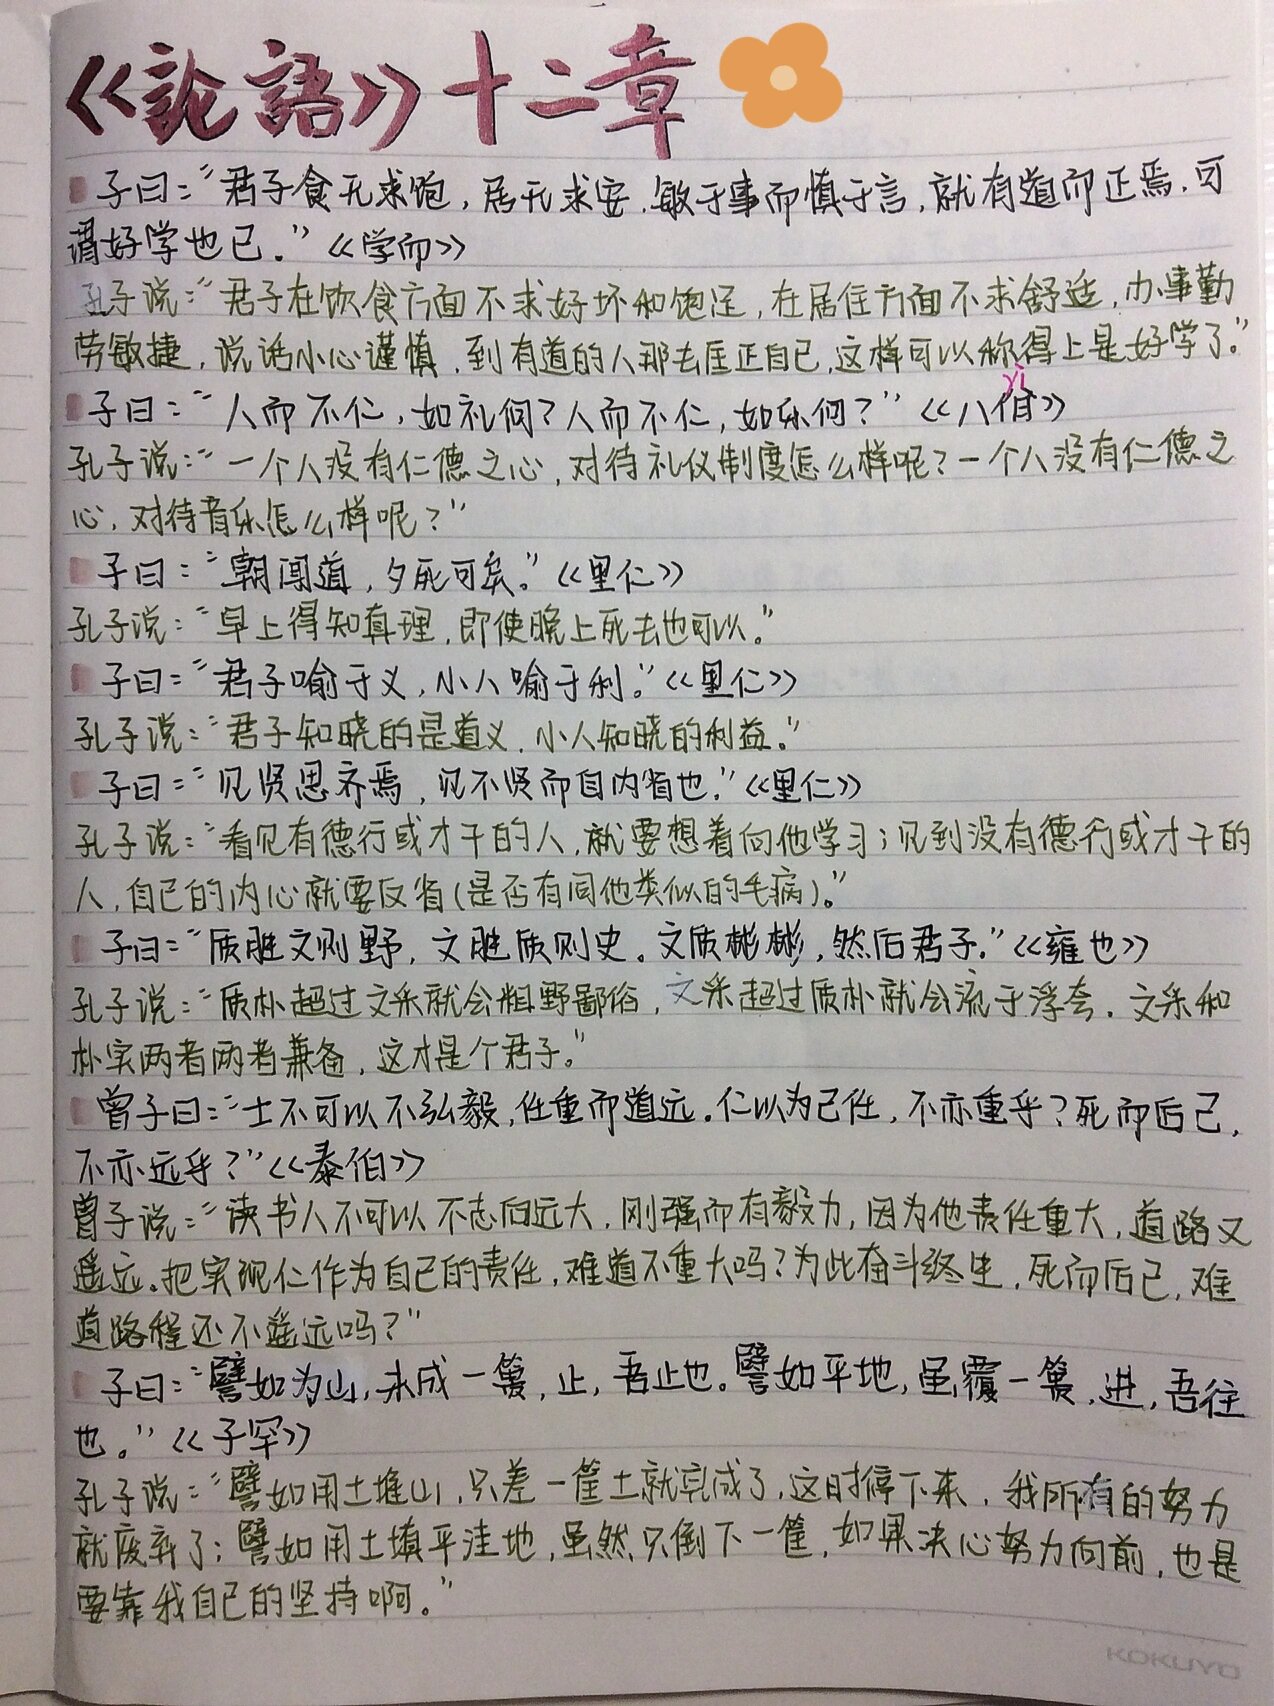 《論語》十二章
子曰：“君子食无求饱，居无求安，敏于事而慎于言，就有道而正焉，可
谓好学也已。”《学而》
孔子说：“君子在饮食方面不求好坏和饱足，在居住方面不求舒适，办事勤
劳敏捷，说话小心谨慎，到有道的人那去匡正自己，这样可以称得上是好学了。”
yì
子曰：“人而不仁，如礼何？人而不仁，如乐何？”《八佾》
孔子说：“一个人没有仁德之心，对待礼仪制度怎么样呢？一个人没有仁德之
心，对待音乐怎么样呢？”
子曰：“朝闻道，夕死可矣。”《里仁》
孔子说：“早上得知真理，即使晚上死去也可以。”
子曰：“君子喻于义，小人喻于利。”《里仁》
孔子说：“君子知晓的是道义，小人知晓的利益。”
子曰：“见贤思齐焉，见不贤而自内省也。”《里仁》
孔子说：“看见有德行或才干的人，就要想着向他学习；见到没有德行或才干的
人，自己的内心就要反省（是否有同他类似的毛病）。”
子曰：“质胜文则野，文胜质则史。文质彬彬，然后君子。”《雍也》
孔子说：“质朴超过文采就会粗野鄙俗，文采超过质朴就会流于浮夸。文采和
朴实两者两者兼备，这才是个君子。”
曾子曰：“士不可以不弘毅，任重而道远。仁以为己任，不亦重乎？死而后已，
不亦远乎？”《泰伯》
曾子说：“读书人不可以不志向远大，刚强而有毅力，因为他责任重大，道路又
遥远。把实现仁作为自己的责任，难道不重大吗？为此奋斗终生，死而后已，难
道路程还不遥远吗？”
子曰：“譬如为山，未成一篑，止，吾止也。譬如平地，虽覆一篑，进，吾往
也。”《子罕》
孔子说：“譬如用土堆山，只差一筐土就完成了，这时停下来，我所有的努力
就废弃了；譬如用土填平洼地，虽然只倒下一筐，如果决心努力向前，也是
要靠我自己的坚持啊。”
KOKUYO